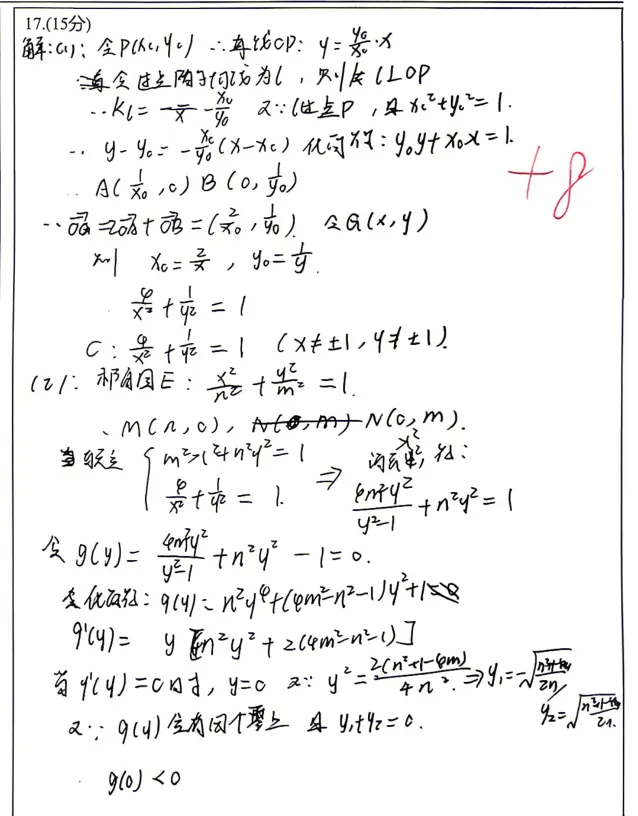 17.(15分)
解:(1): 令P(x₀,y₀) ∴直线OP: y=y₀/x₀·x
令过点P的切线为l, 则l⊥OP
∴ kl = -x₀/y₀ 又∵l过点P, 且x₀²+y₀²=1.
∴ y-y₀=-x₀/y₀(x-x₀) 化简为: y₀y+x₀x=1.
∴ A(1/x₀,0) B(0,1/y₀)
∴ OG=2OA+OB=(2/x₀,1/y₀). 令G(x,y)
则 x₀=2/x, y₀=1/y.
4/x²+1/y²=1
C: 4/x²+1/y²=1 (x≠±1,y≠±1).
+8
(2): 椭圆E: x²/n²+y²/m²=1.
∴ M(n,0), N(0,m) N(0,m).
联立 { m²x²+n²y²=1
4/x²+1/y²=1. ⇒ 消去x², 得:
4m²y²/(y²-1)+n²y²=1
令g(y)=4m²y²/(y²-1)+n²y²-1=0.
变化百得: g(y)=n²y⁴+(4m²-n²-1)y²+1=0
g'(y)= y[4n²y²+2(4m²-n²-1)]
当g'(y)=0时, y=0 又∵ y²=2(n²+1-4m)/4n². ⇒ y₁=-
y₂=
又∵ g(y)会有四个零点 且y₁+y₂=0.
g(0)<0